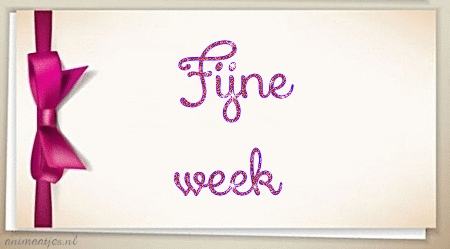 Fijne
week
animaatjes.nl